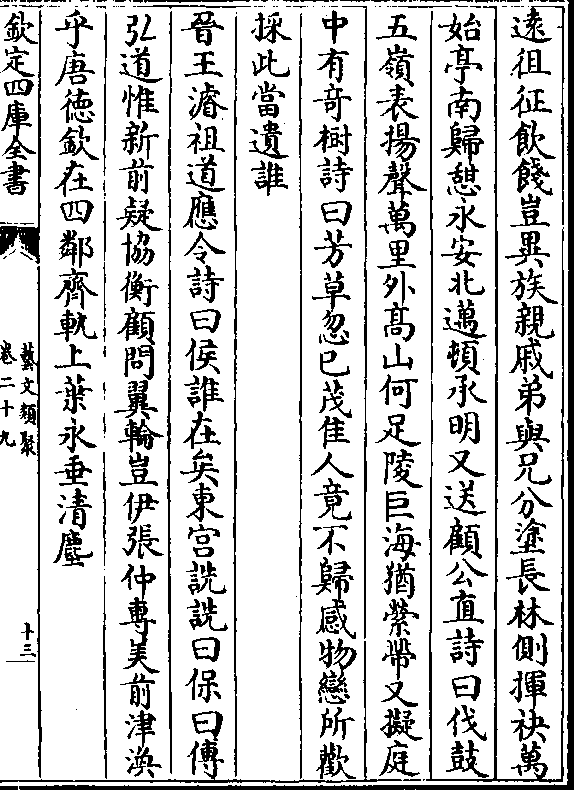 遠徂征飲餞豈異族親戚弟與兄分塗長林側揮袂萬
始亭南歸憩永安北邁頓承明又送顧公直詩曰伐鼓
五嶺表揚聲萬里外髙山何足陵巨海猶縈帶又擬庭
中有奇樹詩曰芳草忽已茂佳人竟不歸感物戀所歡
採此當遺誰
晉王濬祖道應令詩曰侯誰在矣東宫詵詵曰保曰傅
弘道惟新前疑協衡顧問翼輪豈伊張仲専美前津渙
乎唐徳欽在四鄰齊軌上葉永垂清塵
欽定四庫全書
藝文類聚
卷二十九
十三